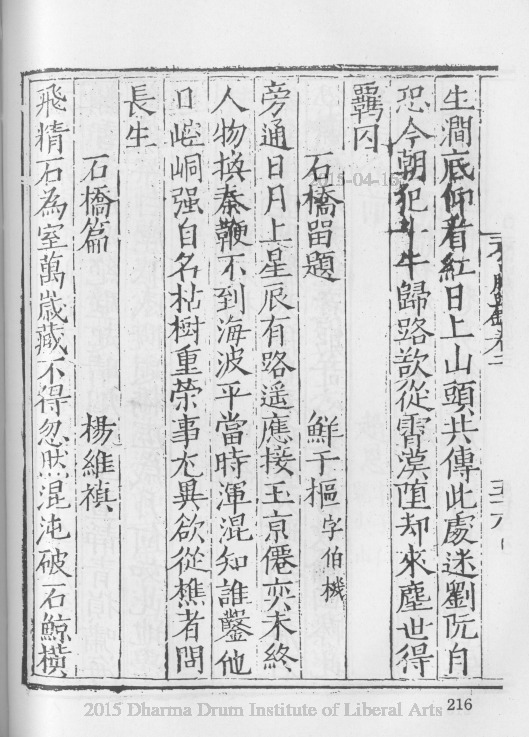 生澗底仰看紅日上山頭共傳此處迷劉阮自
恐今朝犯斗牛歸路欲從霄漢墮却來塵世得
羈囚
石橋留題 鮮于樞字伯機
旁通日月上星辰有路遥應接玉京僊奕未終
人物換秦鞭不到海波平當時渾混知誰鑿他
日崆峒强自名枯樹重榮事尤異欲從樵者問
長生
石橋篇 楊維禎
飛精石為室萬歲藏不得忽然混沌破石鯨橫
216
2015-04-16
2015 Dharma Drum Institute of Liberal Arts